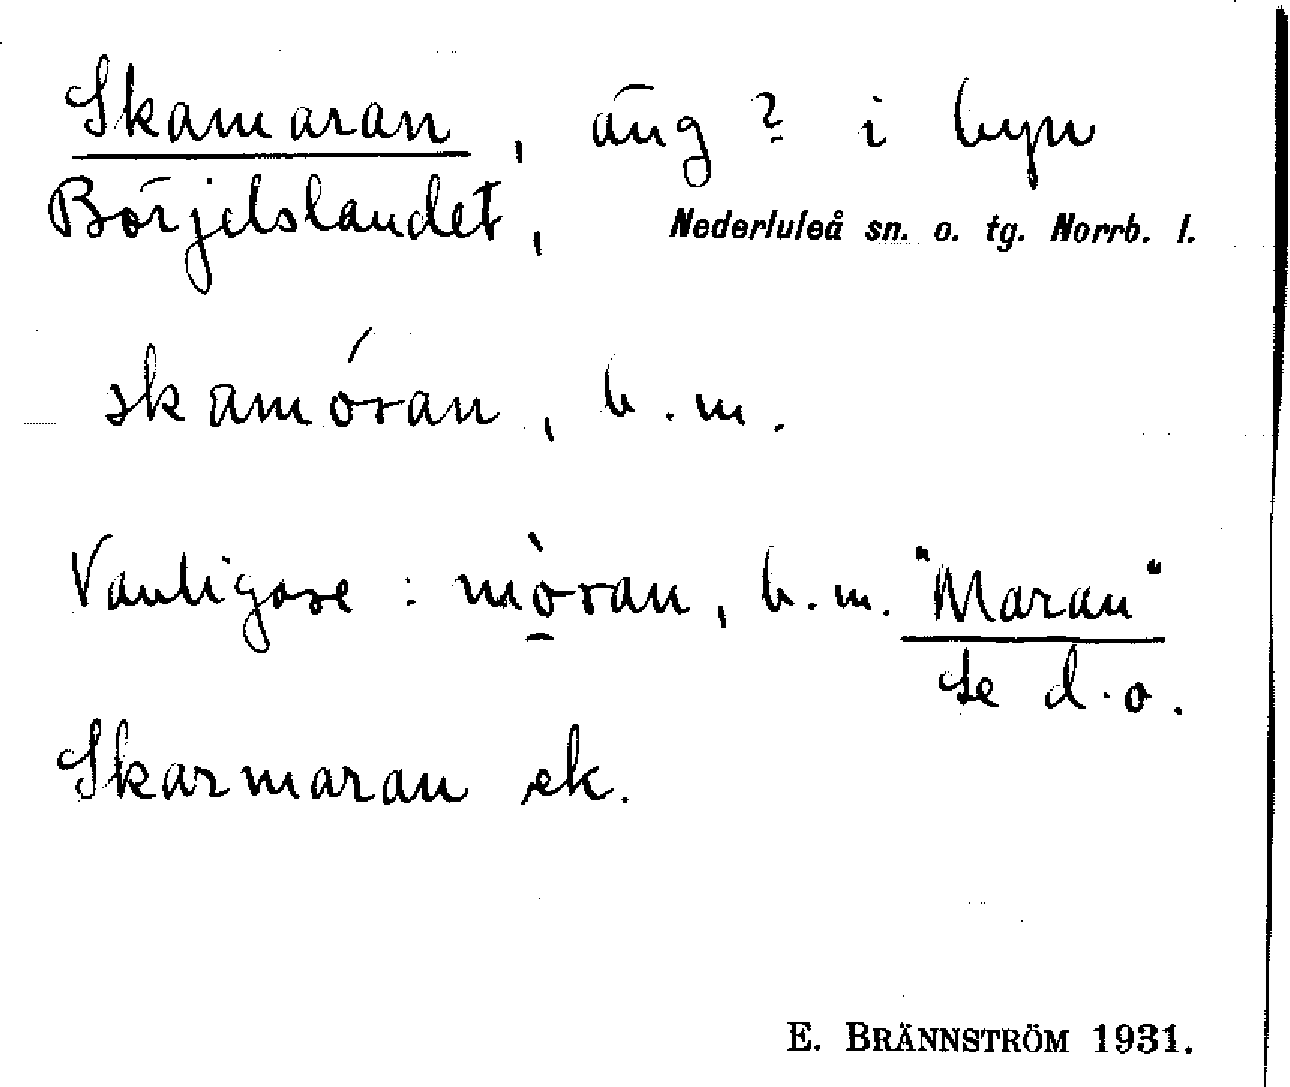 Skamaran, äng ? i byn
Börjelslandet, Nederluleå sn. o. tg. Norrb. l.
skamóran, b. m.
Vanligare : mò̱ran, b. m. "Maran"
se d. o.
Skarmaran ek.
E. BRÄNNSTRÖM 1931.